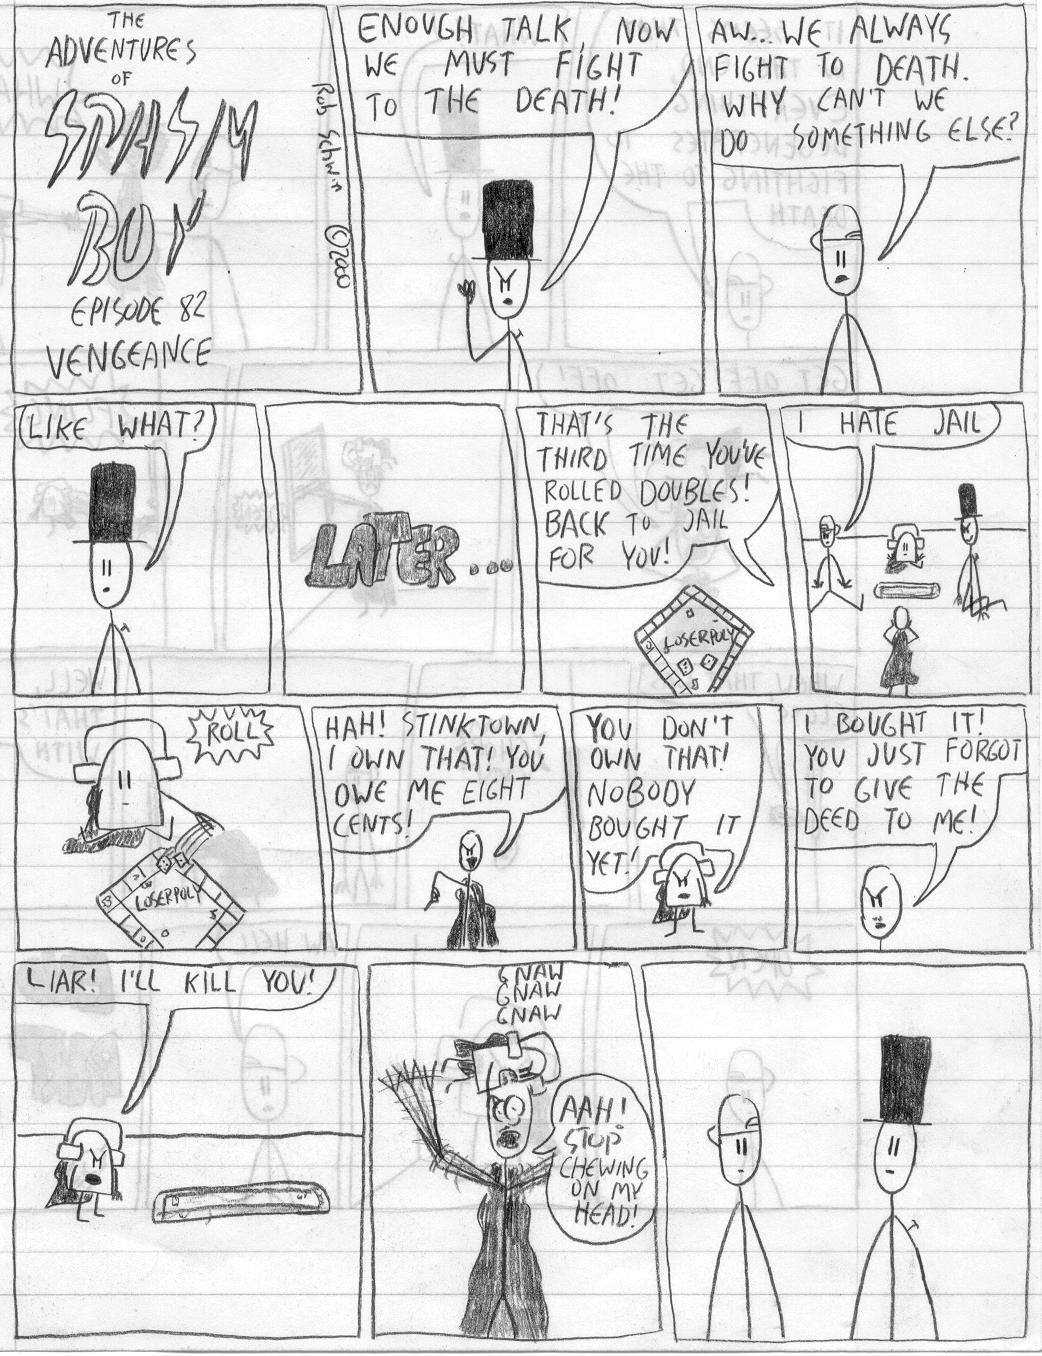 THE
ADVENTURES
OF
SPASM
BOY
EPISODE 82
VENGEANCE
Rob Schwin ©2000
ENOUGH TALK, NOW
WE MUST FIGHT
TO THE DEATH!
AW... WE ALWAYS
FIGHT TO DEATH.
WHY CAN'T WE
DO SOMETHING ELSE?
LIKE WHAT?
LATER...
THAT'S THE
THIRD TIME YOU'VE
ROLLED DOUBLES!
BACK TO JAIL
FOR YOU!
LOSERPOLY
I HATE JAIL
ROLL
LOSERPOLY
HAH! STINKTOWN,
I OWN THAT! YOU
OWE ME EIGHT
CENTS!
YOU DON'T
OWN THAT!
NOBODY
BOUGHT IT
YET!
I BOUGHT IT!
YOU JUST FORGOT
TO GIVE THE
DEED TO ME!
LIAR! I'LL KILL YOU!
GNAW
GNAW
GNAW
AAH!
STOP
CHEWING
ON MY
HEAD!